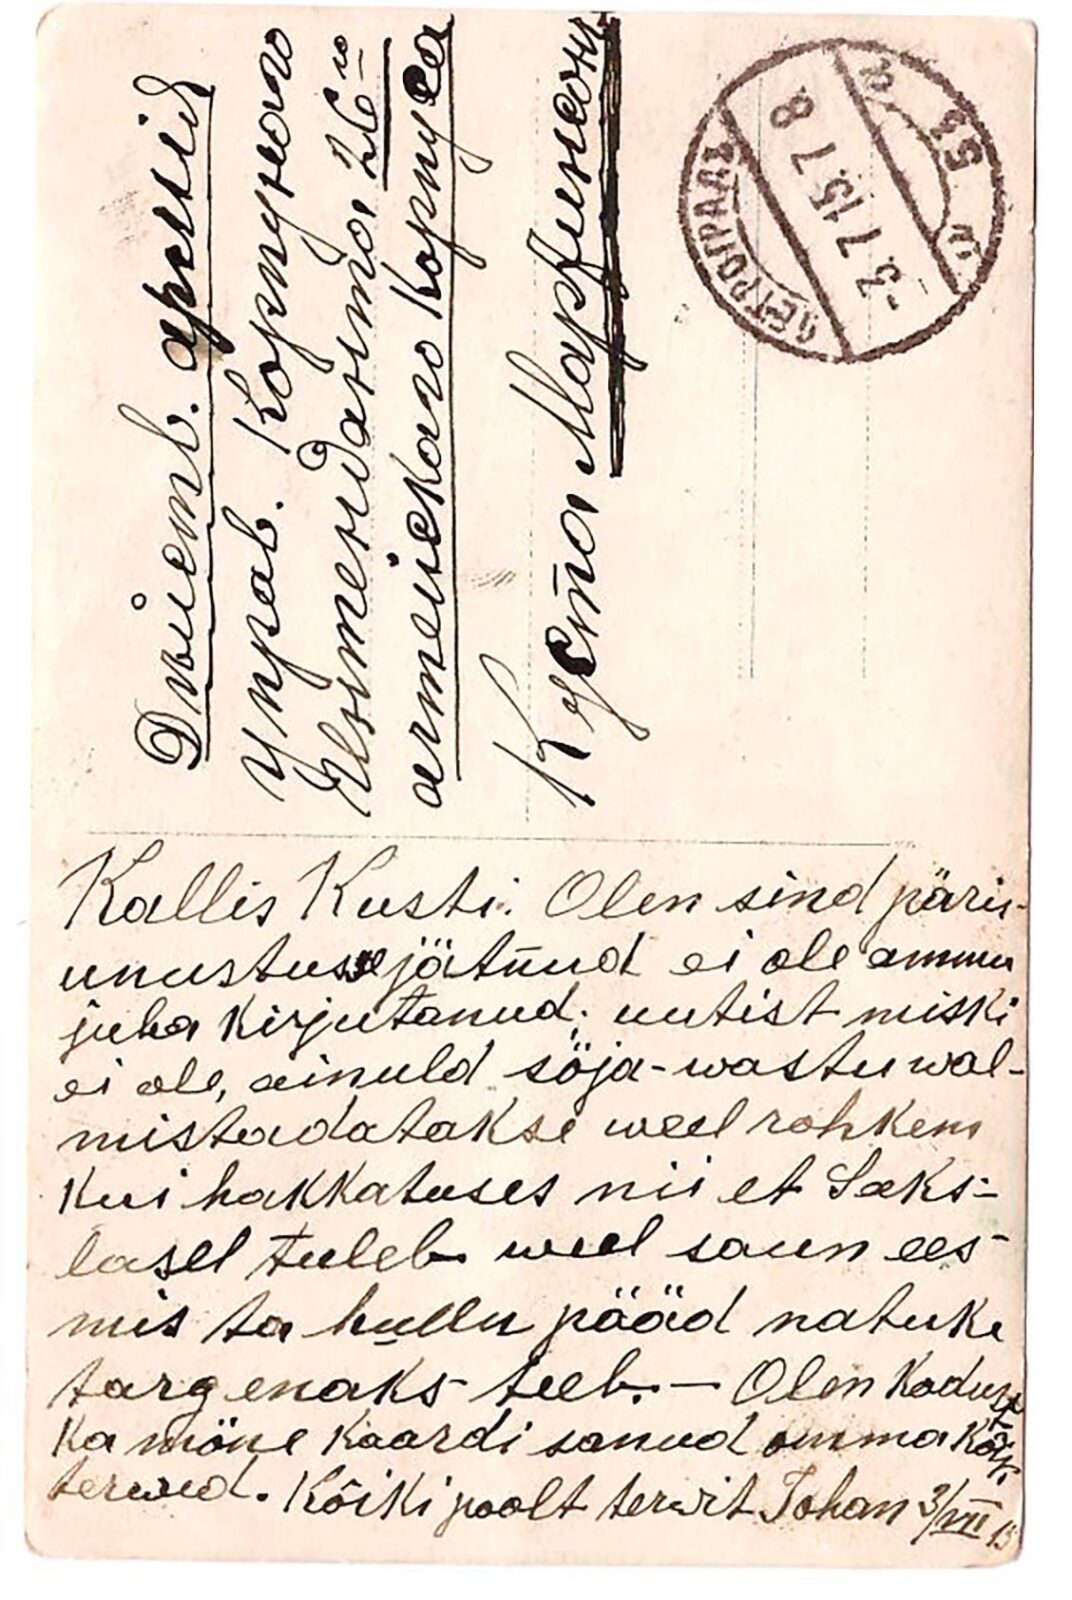 Дѣйств. армія
управ. Корпусного
Интенданта 26го
армейскаго корпуса
Куста Мартинсонъ
ПЕТРОГРАДЪ
-3.7.15.7 8
Kallis Kusti. Olen sind päris
unustusse jätnud ei ole ammu
juba kirjutanud. uutist miski
ei ole, ainuld söja-wastu wal-
mistadatakse weel rohkem
kui hakkatuses nii et Saks-
lasel tuleb weel saun ees
mis ta hullu pääd natuke
targenaks teeb. — Olen kodust
ka möne kaardi sanud omma käes
terwed. Kõiki poolt terwit Johan 3/VII 15